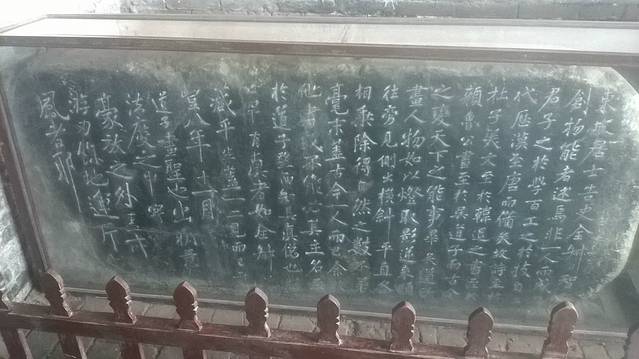 東坡居士書史全叔
創物能者述焉非一人而成
君子之於學百工之於技自
代歷漢至唐而備矣故詩至
杜子美文至於韓退之書至
顏魯公畫至於吳道子而古今
之變天下之能事畢矣道
畫人物如以燈取影逆來順
往旁見側出橫斜平直各
相乘除得自然之數
毫末蓋古今一人而余
他畫或不能必其主名
於道子望而知其真偽也
世罕有真者如全叔
藏平生蓋一二見而已
八年十一月
道子畫聖也出新意
法度之中寄
豪放之外
游刃餘地運斤
風者耶